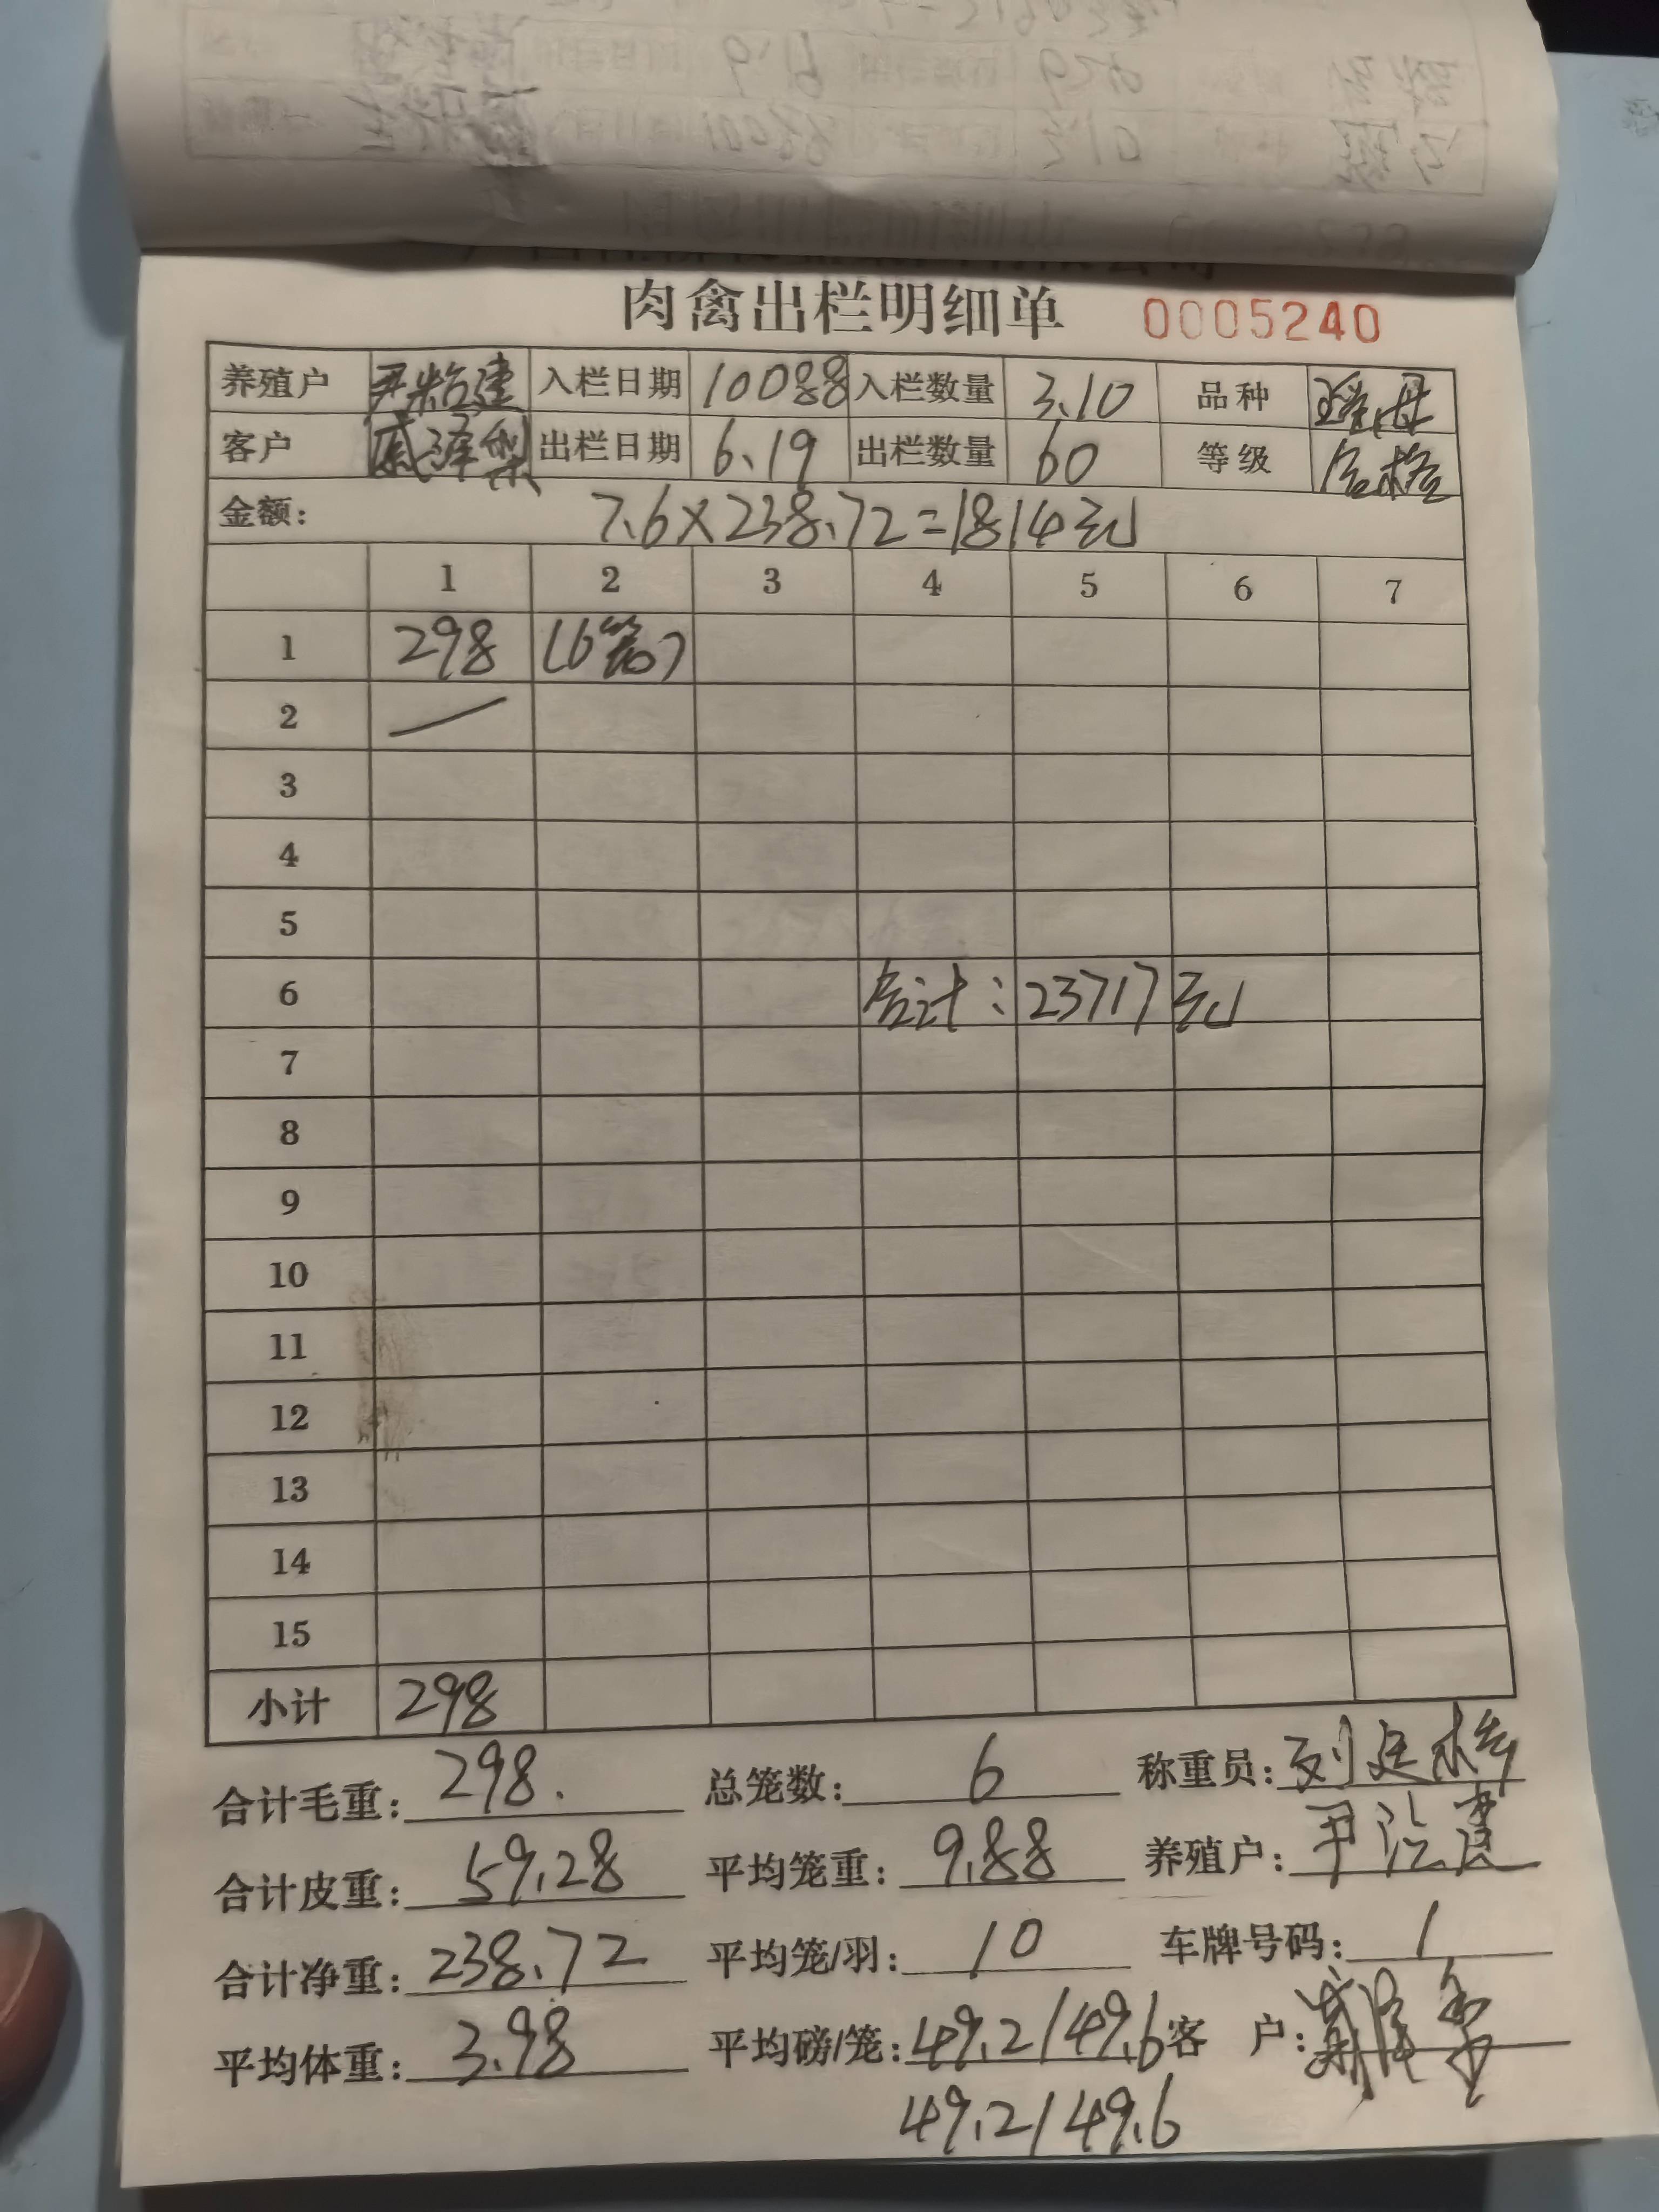 肉禽出栏明细单 0005240
养殖户 入栏日期 10088 入栏数量 3.10 品种
客户 戚泽 出栏日期 6.19 出栏数量 60 等级 合格
金额: 7.6×238.72=1814元
1 2 3 4 5 6 7
1 298 (6笼)
2
3
4
5
6 合计: 23717元
7
8
9
10
11
12
13
14
15
小计 298
合计毛重: 298. 总笼数: 6 称重员:
合计皮重: 59.28 平均笼重: 9.88 养殖户:
合计净重: 238.72 平均笼/羽: 10 车牌号码: 1
平均体重: 3.98 平均磅/笼: 49.2/49.6 客 户:
49.2/49.6